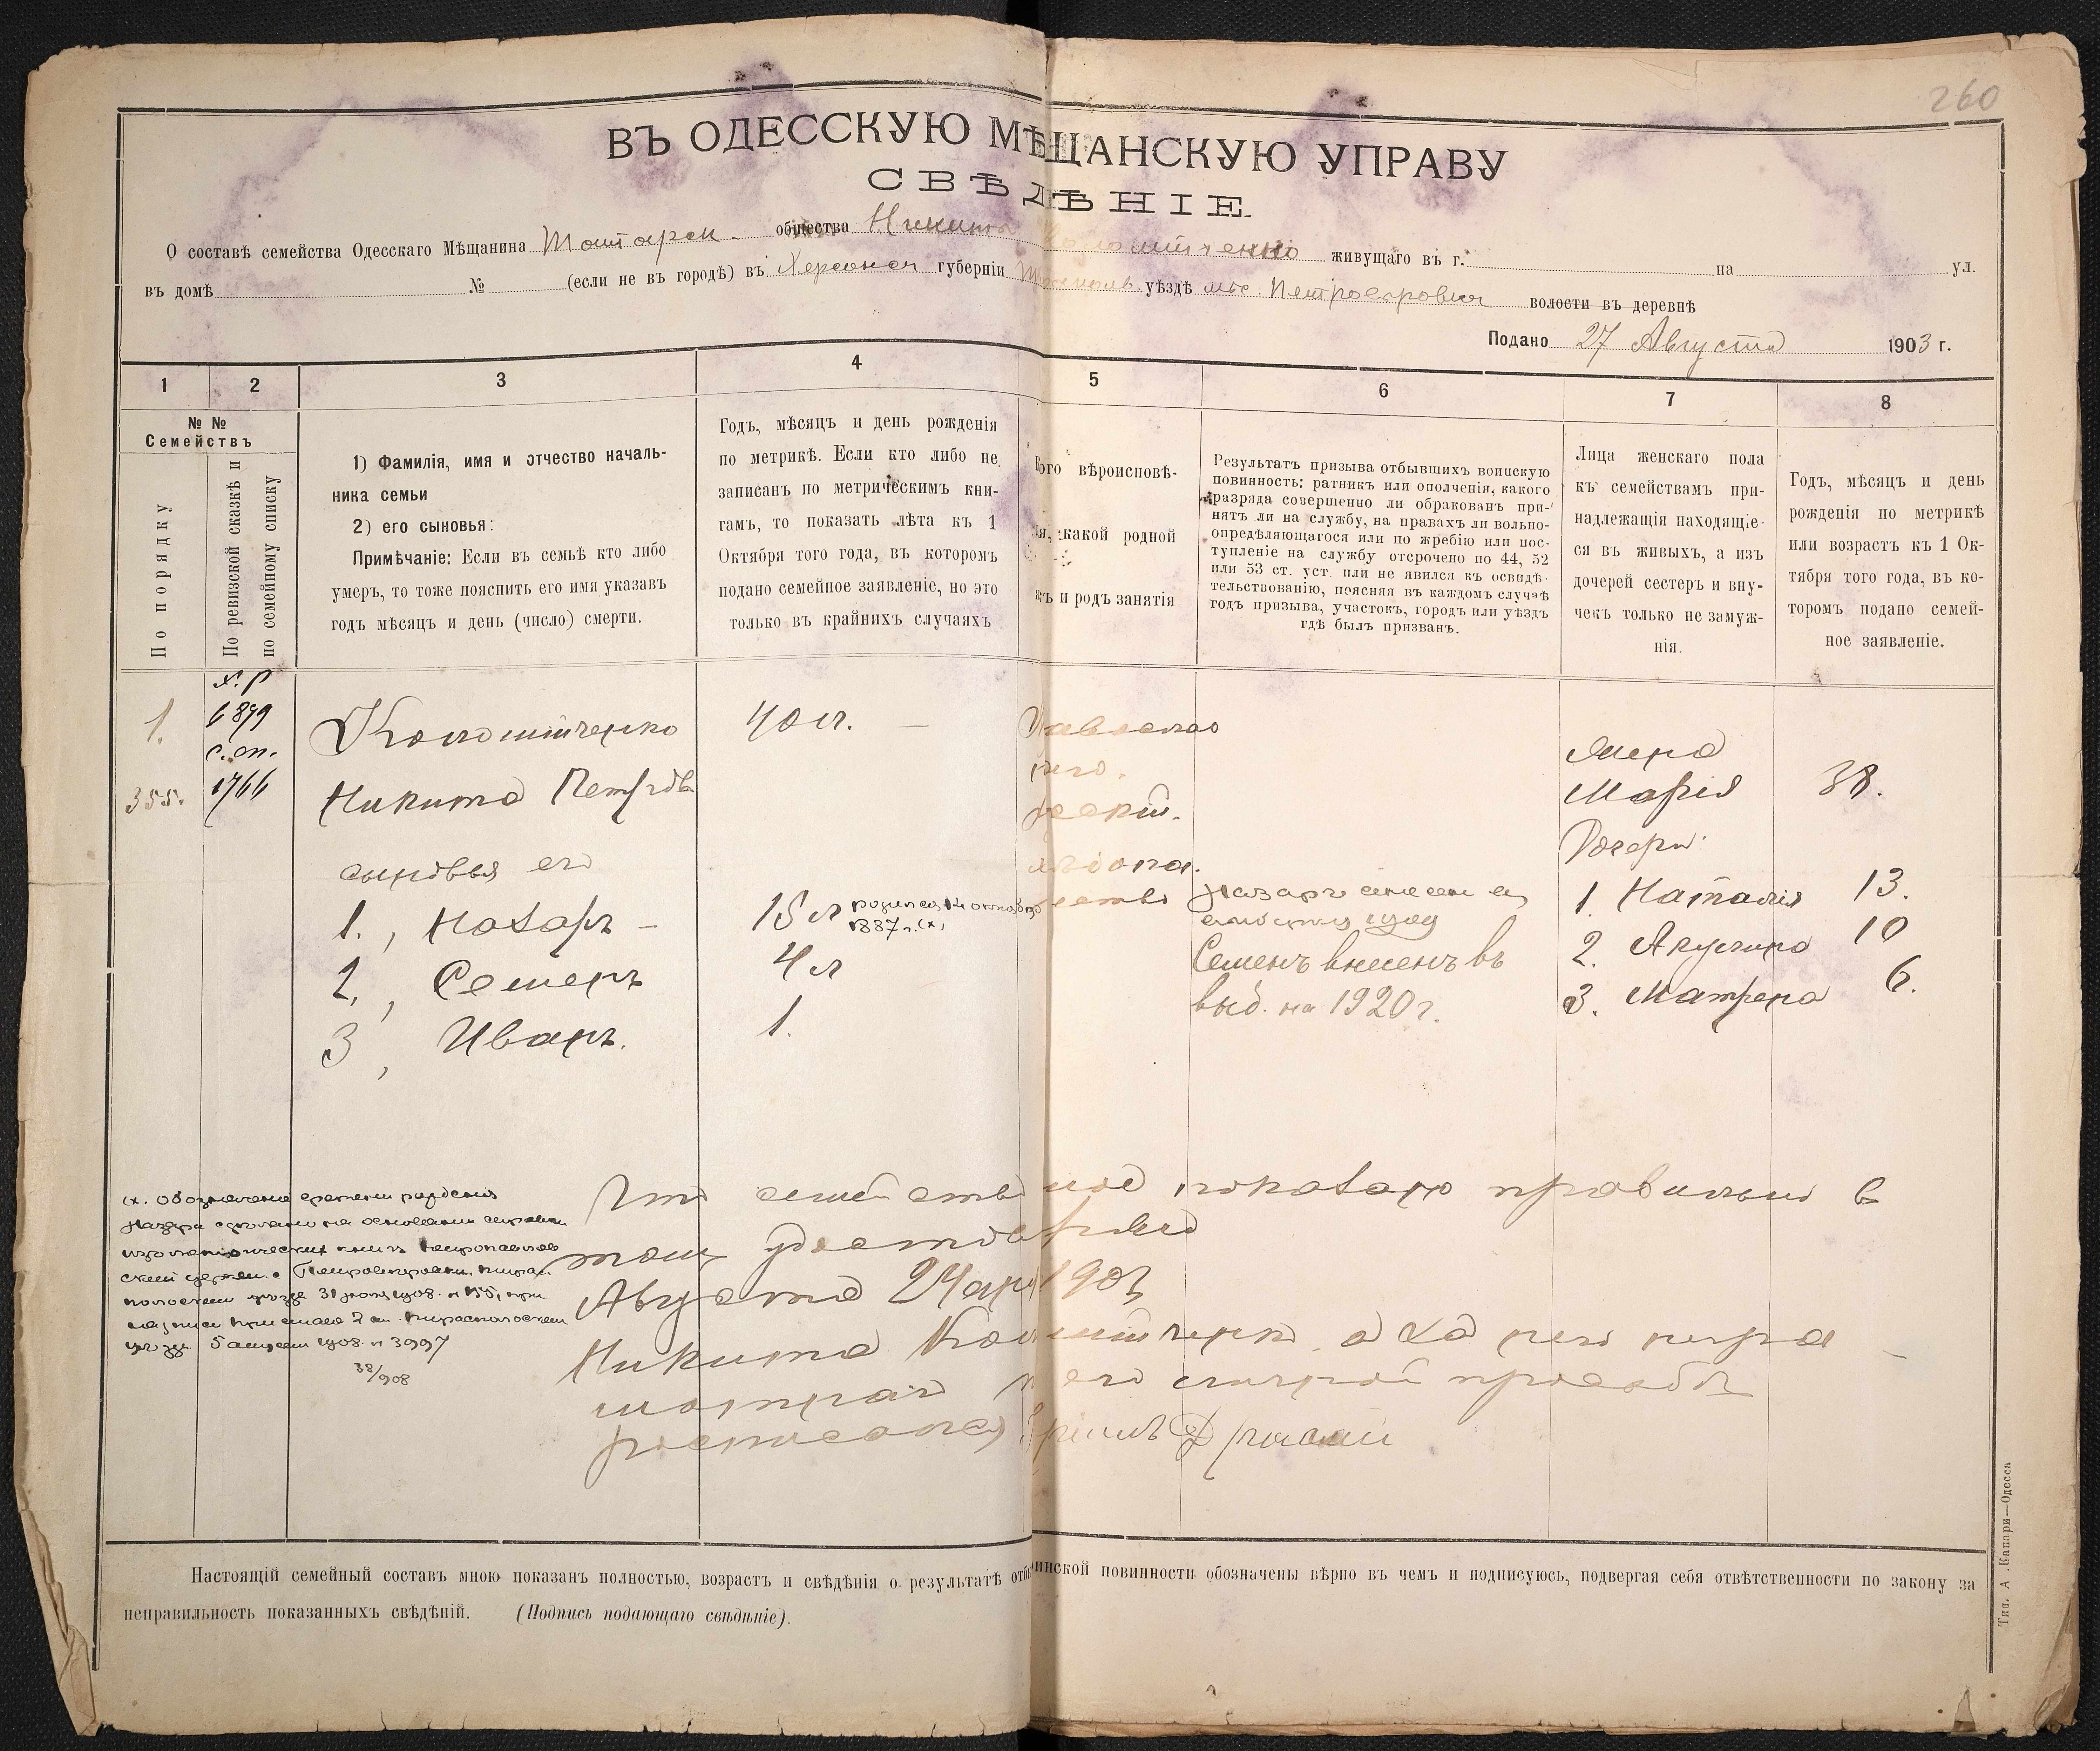 260
ВЪ ОДЕССКУЮ МѢЩАНСКУЮ УПРАВУ
СВѢДѢНІЕ.
О составѣ семейства Одесскаго Мѣщанина Татарск. общества Никиты Коломитченко живущаго въ г. на ул.
въ домѣ № (если не въ городѣ) въ Херсонск губерніи уѣздѣ мѣс. Петроверовка волости въ деревнѣ
Подано 27 Августа 1903 г.
1 2 3 4 5 6 7 8
№ №
Семействъ
По порядку
По ревизской сказкѣ и
по семейному списку
1) Фамилія, имя и отчество началь-
ника семьи
2) его сыновья:
Примѣчаніе: Если въ семьѣ кто либо
умеръ, то тоже пояснить его имя указавъ
годъ мѣсяцъ и день (число) смерти.
Годъ, мѣсяцъ и день рожденія
по метрикѣ. Если кто либо не
записанъ по метрическимъ кни-
гамъ, то показать лѣта къ 1
Октября того года, въ которомъ
подано семейное заявленіе, но это
только въ крайнихъ случаяхъ
вѣроисповѣ-
какой родной
и родъ занятія
Результатъ призыва отбывшихъ воинскую
повинность: ратникъ или ополченія, какого
разряда совершенно ли обракованъ при-
нятъ ли на службу, на правахъ ли вольно-
опредѣляющагося или по жребію или пос-
тупленіе на службу отсрочено по 44, 52
или 53 ст. уст. или не явился къ освидѣ-
тельствованію, поясняя въ каждомъ случаѣ
годъ призыва, участокъ, городъ или уѣздъ
гдѣ былъ призванъ.
Лица женскаго пола
къ семействамъ при-
надлежащія находящіе-
ся въ живыхъ, а изъ
дочерей сестеръ и вну-
чекъ только не замуж-
нія.
Годъ, мѣсяцъ и день
рожденія по метрикѣ
или возрастъ къ 1 Ок-
тября того года, въ ко-
торомъ подано семей-
ное заявленіе.
1.
355.
х. р
1899
с. сп.
1766
Коломитченко 40 л. —
Никита Петров
сыновья его
1., Назаръ — 15 л родился 14 октября
1887 г. (х)
2, Семенъ 4 л
3, Иванъ. 1.
Православ
Назаръ внесен въ
Семенъ внесенъ въ
выб. на 1920 г.
Жена
Марія 38.
Дочери:
1. Наталія 13.
2. Акулина 10
3. Матрена 6.
(х. Обозначение времени рождения
Назара сделано на основании справки
из метрических книг Петропавлов
ской церкви с Петроверовки, Тирас.
польского уезда 31 1908. № 155, при
2 ст. Тираспольском
уезд. 5 1908. № 3997
38/908
Что семейство мое показано правильно в
том удостоверяю
Августа 24 дня 1903
Никита Коломитченко а за него неграмотнаго
по его личной просьбѣ
росписался
Настоящій семейный составъ мною показанъ полностью, возрастъ и свѣдѣнія о результатѣ отб инской повинности обозначены вѣрно въ чемъ и подписуюсь, подвергая себя отвѣтственности по закону за
неправильность показанныхъ свѣдѣній. (Подпись подающаго свѣдѣніе).
Тип. А. Капари—Одесса